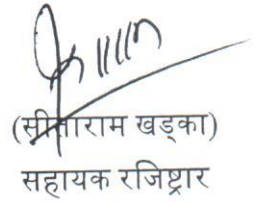 (सीताराम खड्का)
सहायक रजिष्ट्रार